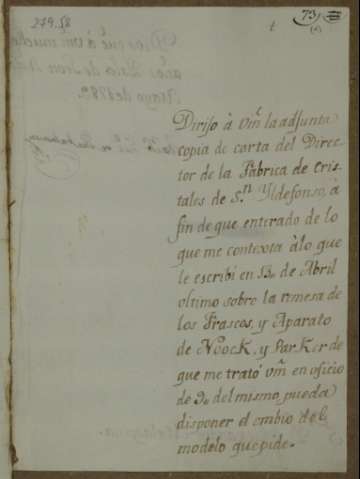 279.58
73
Dirijo à Vm̃. la adjunta
copia de carta del Direc-
tor de la Fàbrica de Cris-
tales de S.n Yldefonso, à
fin de que enterado de lo
que me contexta àlo que
le escribí en 13,, de Abril
ultimo sobre la remesa de
los Frascos, y Aparato
de NoocK, y ParKer de
que me trató Vm̃ en oficio
de 9,, del mismo, pueda
disponer el embio del
modelo que pide.